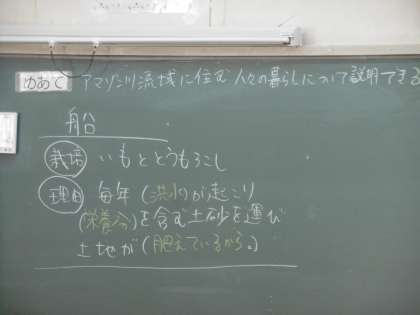 めあて アマゾン川流域に住む人々の暮らしについて説明できる
船
栽培 いもととうもろこし
理由 毎年(洪水)が起こり
(栄養分)を含む土砂を運び
土地が(肥えているから。)